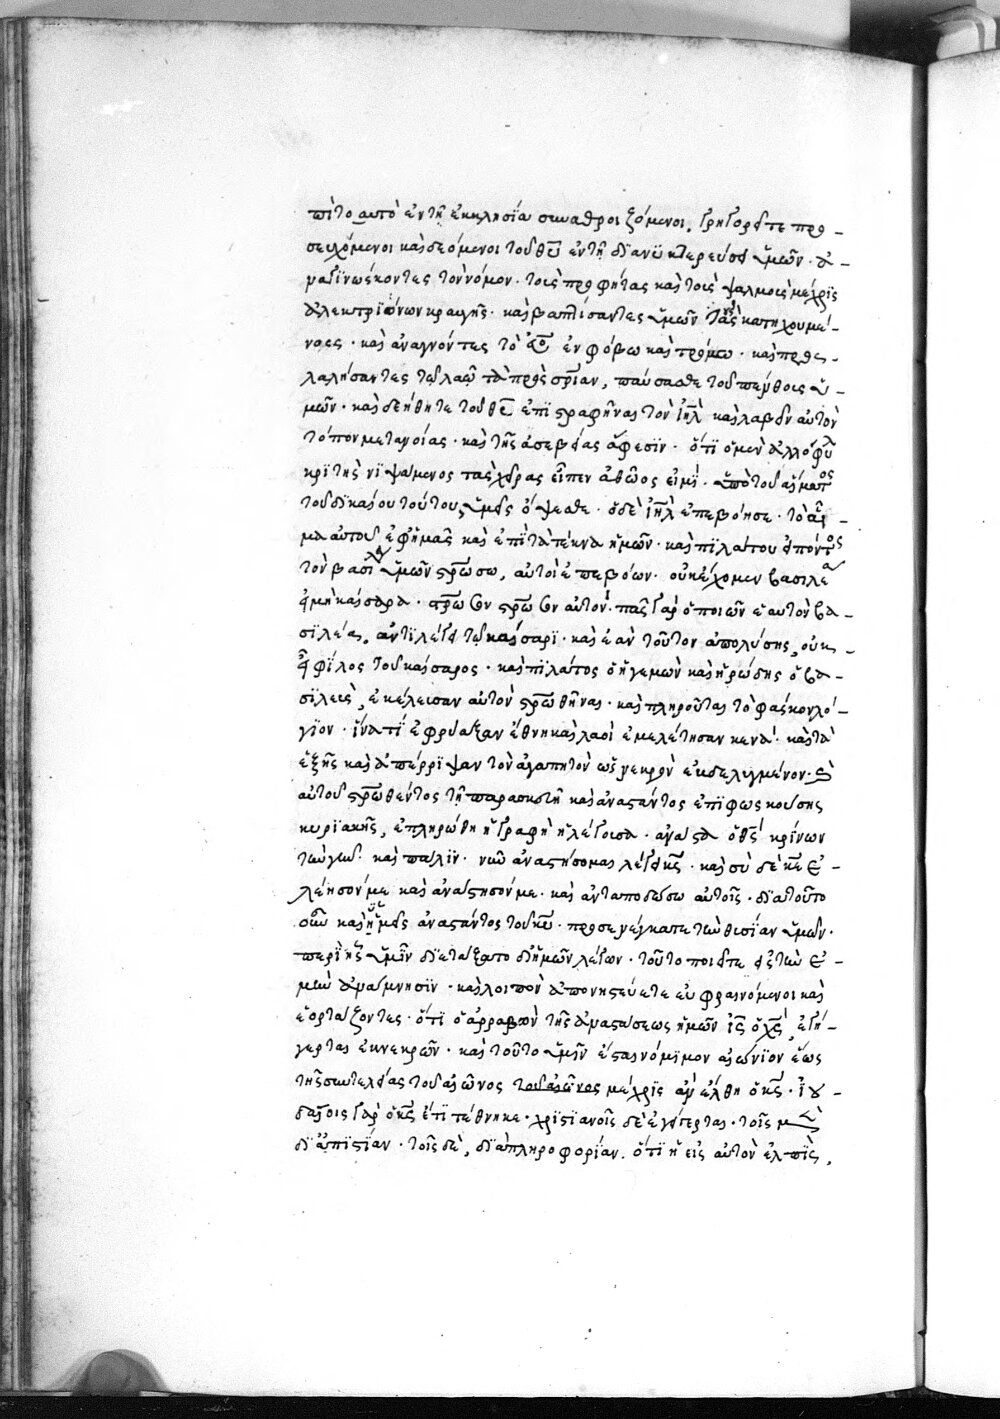 πὶτοαυτὸ ἐν τῆ ἐκκλησία συναθροιζόμενοι, γρηγορεῖτε προ-
σευχόμενοι καὶ δεόμενοι τοῦ θῦ ἐν τῆ διανυκτερεύσει ὑμῶν· ἀ-
ναγινώσκοντες τὸν νόμον· τοὺς προφήτας καὶ τοὺς ψαλμοὺς μέχρις
ἀλεκτριόνων κραυγῆς· καὶ βαπτίσαντες ὑμῶν τοὺς κατηχουμέ-
νους· καὶ ἀναγνόντες τὸ ἐν φόβω καὶ τρόμω· καὶ προσ-
λαλήσαντες τῶ λαῶ τὰ πρὸς σριαν, παύσασθε τοῦ πένθους ὑ-
μῶν· καὶ δεήθητε τοῦ θῦ ἐπιστραφῆναι τὸν ἰηλ καὶ λαβεῖν αὐτὸν
τόπον μετανοίας· καὶ τῆς ἀσεβείας ἄφεσιν· ὅτι ὁ μὲν ἀλλόφυλ
κριτὴς νιψάμενος τὰς χεῖρας εἶπεν ἀθῶος εἰμὶ· ἀπὸ τοῦ αἵματος
τοῦ δικαίου τούτου, ὑμεῖς ὄψεσθε· ὁ δὲ ἰηλ ἐπεβόησε· τὸ αἷ-
μα αὐτοῦ ἐφ ἡμᾶς καὶ ἐπὶ τὰ τέκνα ἡμῶν· καὶ πιλάτου εἰπόντος
τὸν βασιλέα ὑμῶν στρώσω, αὐτοὶ ἐπεβόων· οὐκ ἔχομεν βασιλέα
εἰ μὴ καίσαρα· στρωσον στρωσον αὐτὸν· πᾶς γὰρ ὁ ποιῶν ἑαυτὸν βα-
σιλέα, ἀντιλέγει τῶ καίσαρι· καὶ ἐὰν τοῦτον ἀπολύσης, οὐκ
εἶ φίλος τοῦ καίσαρος· καὶ πιλάτος ὁ ἡγεμὼν καὶ ἡρώδης ὁ βα-
σιλεὺς, ἐκέλευσαν αὐτὸν στρωθῆναι· καὶ πληροῦται τὸ φάσκον λό-
γιον· ἵνα τί ἐφρύαξαν ἔθνη καὶ λαοὶ ἐμελέτησαν κενά· καὶ τὰ
ἑξῆς καὶ ἀπέρριψαν τὸν ἀγαπητὸν ὡς νεκρὸν ἐβδελυγμένον·
αὐτοῦ στρωθέντος τῆ παρασκευῆ καὶ ἀναστάντος ἐπιφωσκούσης
κυριακῆς, ἐπληρώθη ἡ γραφὴ ἡ λέγουσα· ἀνάστα ὁ θς κρίνων
τὴν γῆν· καὶ πάλιν· νῦν ἀναστήσομαι λέγει κς· καὶ σὺ δὲ κε ἐ-
λέησόν με καὶ ἀνάστησόν με· καὶ ἀνταποδώσω αὐτοῖς· διατοῦτο
οὖν καὶ ὑμεῖς ἀναστάντος τοῦ κυ· προσενέγκατε τὴν θυσίαν ὑμῶν·
περὶ ἧς ὑμῖν διετάξατο δι ἡμῶν λέγων· τοῦτο ποιεῖτε εἰς τὴν ἐ-
μὴν ἀνάμνησιν· καὶ λοιπὸν ἀπονηστεύετε εὐφραινόμενοι καὶ
ἑορτάζοντες· ὅτι ὁ ἀρραβὼν τῆς ἀναστάσεως ἡμῶν ις ὁ χς, ἐγή-
γερται ἐκ νεκρῶν· καὶ τοῦτο ὑμῖν ἔσται νόμιμον αἰώνιον ἕως
τῆς συντελείας τοῦ αἰῶνος τοῦ αἰῶνος μέχρις ἂν ἔλθη ὁ κς· ἰου-
δαίοις γὰρ ὁ κς ἔτι τέθνηκε· χριστιανοῖς δὲ ἐγήγερται· τοῖς μὲν
δι ἀπιστίαν· τοῖς δὲ, διὰ πληροφορίαν. ὅτι ἡ εἰς αὐτὸν ἐλπὶς,